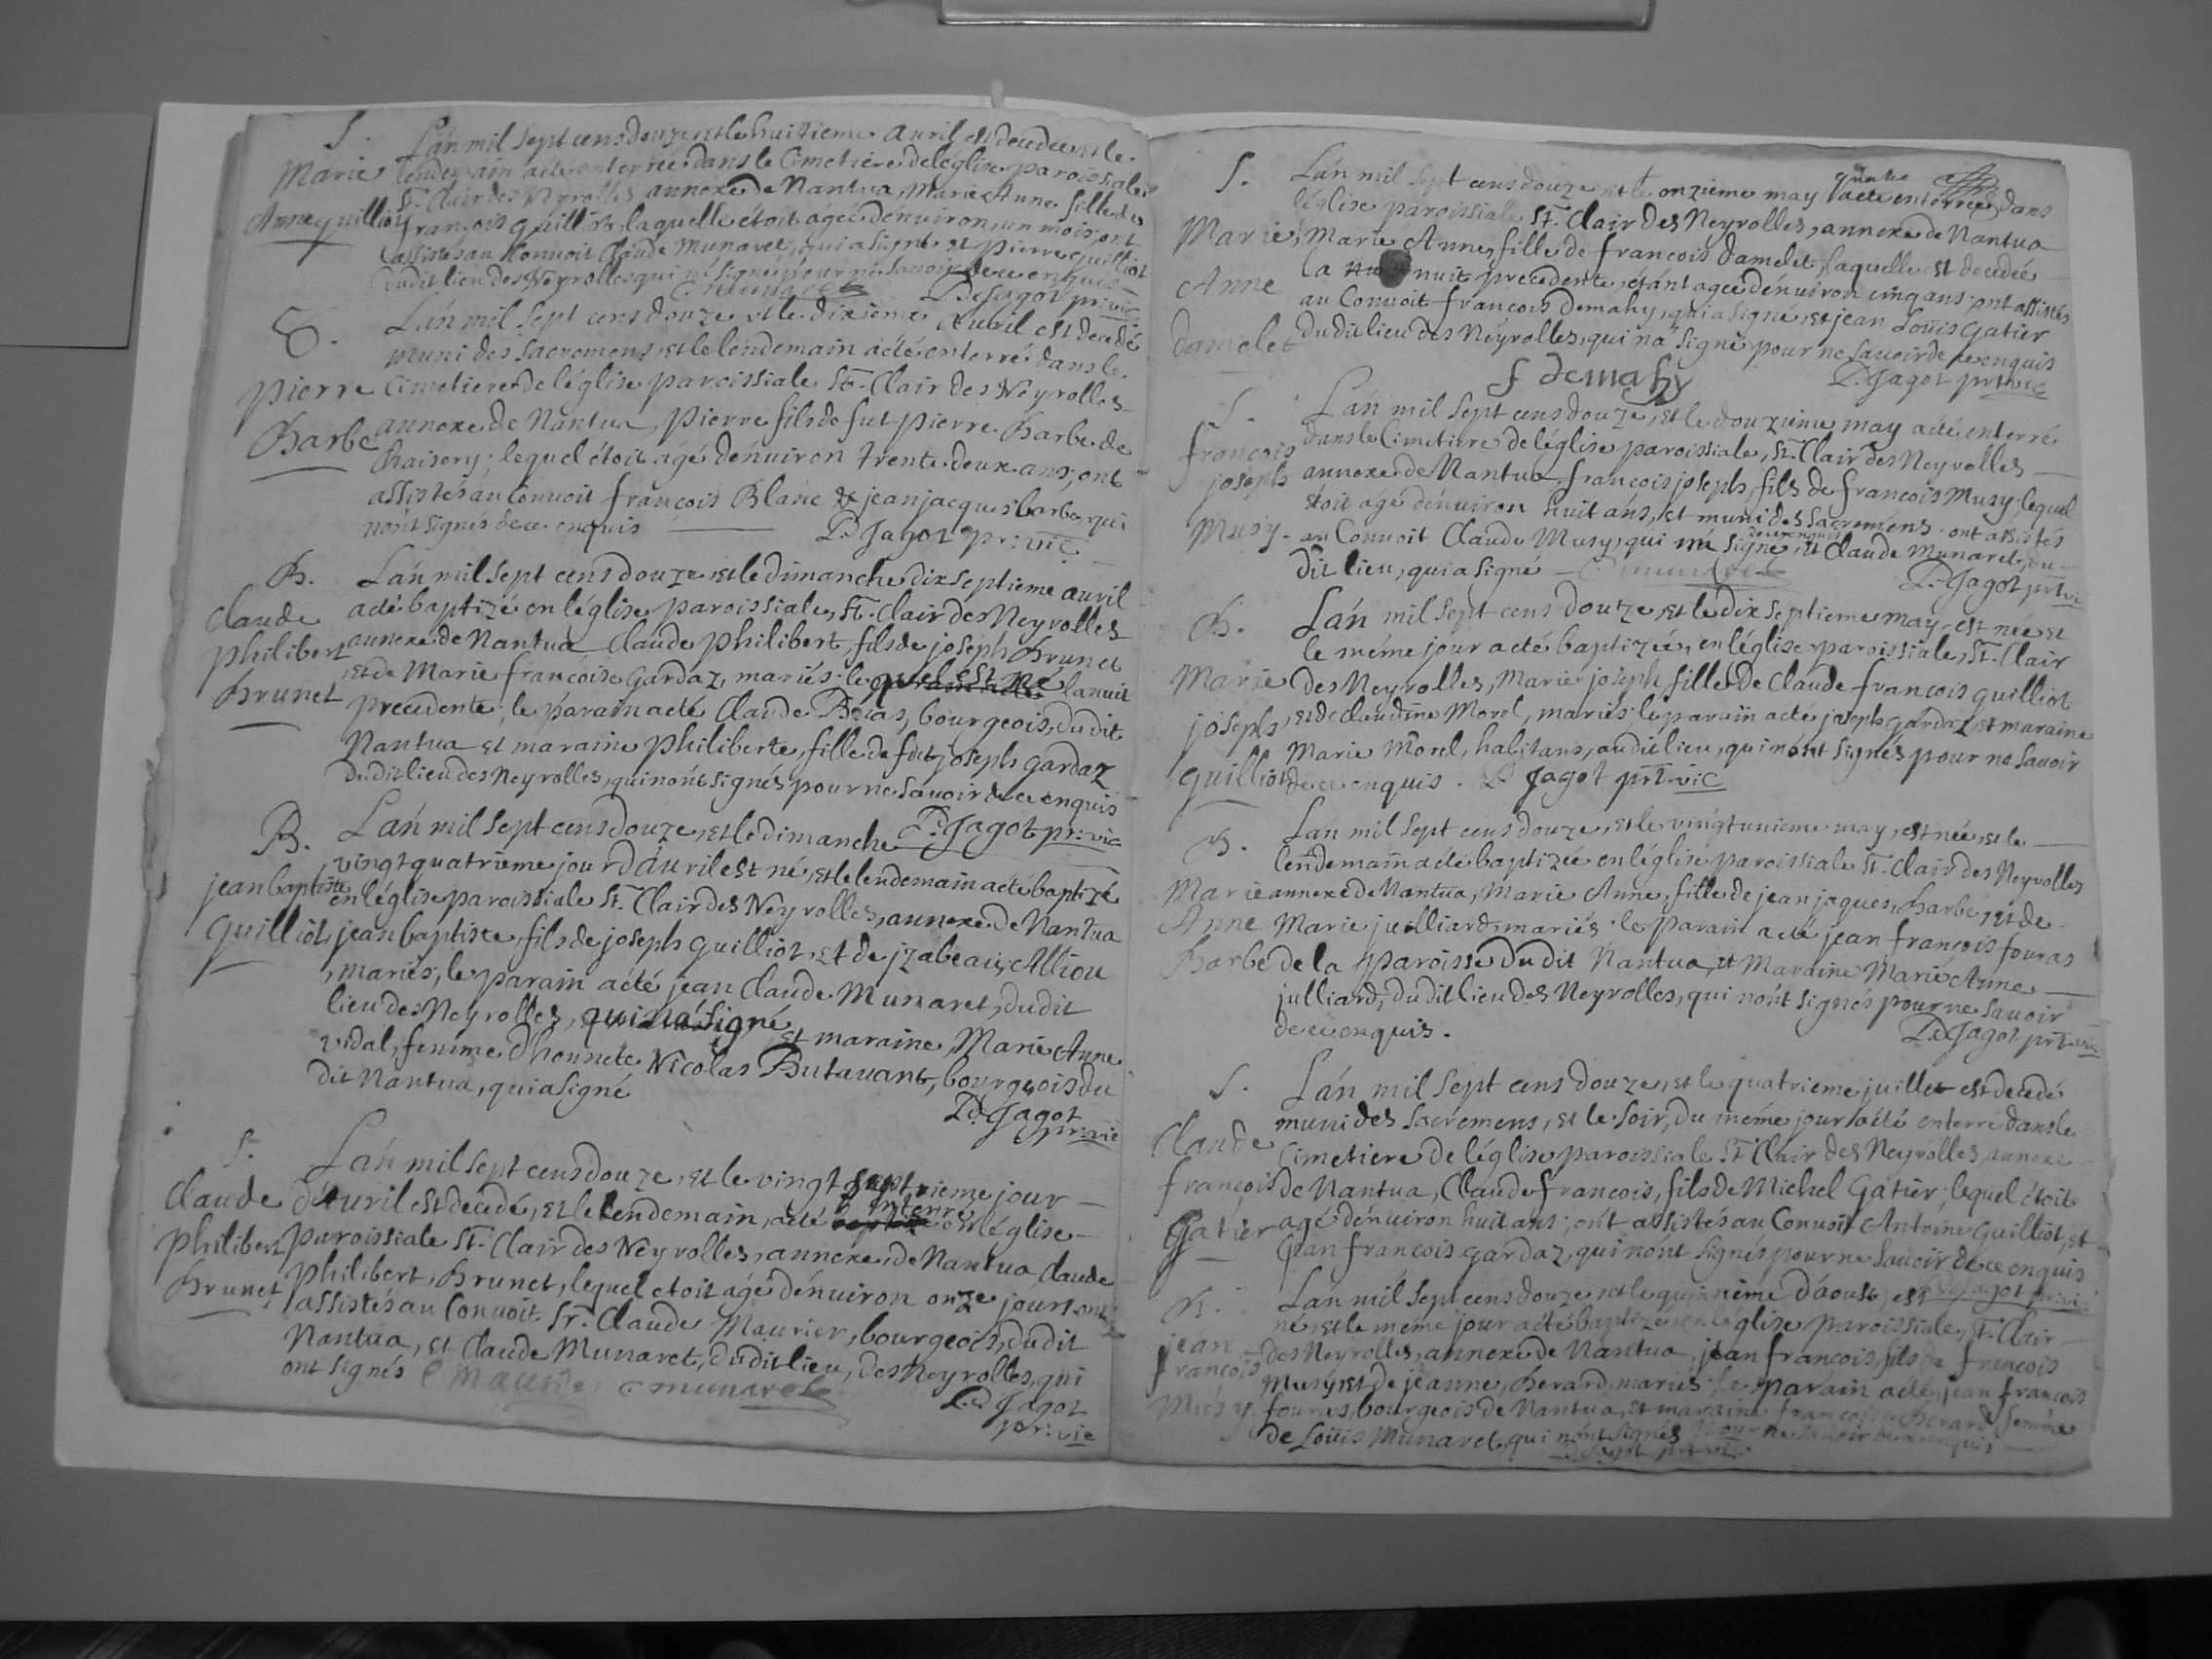 S.
Marie
Anne quilliot
L'an mil sept cens douze et le huitieme avril est decedée et le
lendemain a été enterrée dans le Cimetiere de léglise paroissiale
St. Clair des Neyrolles annexe de Nantua Marie Anne fille de
françois quilliot, laquelle étoit agée dénuiron un mois, ont
assistés au Conuoit Claude Munaret, qui a signé et pierre quilliot
dudit lieu des Neyrolles qui n'a signé pour ne sauoir de ce enquis
C munaret D. Jagot pr: vic
S.
pierre
Barbe
L'an mil sept cens douze et le dixieme avril est decedé
muni des sacremens, et le lendemain a été enterré dans le
Cimetiere de léglise paroissiale St. Clair des Neyrolles
annexe de Nantua, pierre fils de fut pierre Barbe de
Chaisery; lequel étoit agé dénuiron trente deux ans; ont
assistés au Conuoit françois Blanc & jean jacques barbe, qui
n'ont signés de ce enquis D. Jagot pr: vic
B.
Claude
philibert
Brunet
L'an mil sept cens douze et le dimanche dix septieme auril
a été baptizé en léglise paroissiale, St. Clair des Neyrolles
annexe de Nantua Claude philibert, fils de joseph Brunet
et de Marie françoise Gardaz, mariés, lequel est né la nuit
precedente; le parain a été Claude Beras, bourgeois, dudit
Nantua et maraine philiberte, fille de fut joseph gardaz
dudit lieu des Neyrolles, qui nont signés pour ne sauoir de ce enquis
D. Jagot pr: vic
B.
jean baptiste
quilliot
L'an mil sept cens douze, et le dimanche
vingt quatrieme jour d'auril est né, et le lendemain a été baptizé
en léglise paroissiale St. Clair des Neyrolles, annexe de Nantua
jean baptiste, fils de joseph quilliot, et de jzabeau Alliou
, mariés, le parain a été jean Claude Munaret, dudit
lieu des Neyrolles, qui n'a signé et maraine, Marie Anne
vidal, femme d'honnete Nicolas Butauant, bourgeois du
dit Nantua, qui a signé
D. Jagot
pr: vic
S.
Claude
philibert
Brunet
L'an mil sept cens douze, et le vingt septrieme jour
d'auril est decedé, et le lendemain, a été enterré en léglise
paroissiale St. Clair des Neyrolles, annexe de Nantua Claude
philibert, Brunet, lequel etoit agé dénuiron onze jours ont
assistés au Conuoit Sr. Claude Maurier, bourgeois, dudit
Nantua, et Claude Munaret, dudit lieu, des Neyrolles, qui
ont signés C munaret
D. Jagot
pr: vic
S.
Marie
Anne
damelet
L'an mil sept cens douze et le onzieme may a été enterrée, dans
léglise paroissiale St. Clair des Neyrolles, annexe de Nantua
, Marie Anne, fille de françois damelet, laquelle est decedée
la nuit precedente, étant agée dénuiron cinq ans ont assistés
au Conuoit françois Demahy, qui a signé, et jean Loüis gatier
du dit lieu des Neyrolles, qui n'a signé pour ne sauoir de ce enquis
f demahy D. Jagot prt vic
S.
françois
joseph
Musy
L'an mil sept cens douze, et le douzieme may a été enterré
dans le Cimetiere de léglise paroissiale, St. Clair des Neyrolles
annexe de Nantua, françois joseph, fils de françois Musy lequel
étoit agé dénuiron huit ans, et muni des sacremens ont assistés
au Conuoit Claude Musy, qui n'a signé de ce enquis, et Claude Munaret, du
dit lieu, qui a signé D. Jagot prt vic
B.
Marie
joseph
quilliot
L'an mil sept cens douze, et le dix septieme may est née et
le méme jour a été baptizée, en léglise paroissiale, St. Clair
des Neyrolles, Marie joseph fille de Claude françois quilliot
, et de Claudine Morel, mariés, le parain a été joseph gardaz et maraine
Marie Morel, habitans, au dit lieu, qui n'ont signés pour ne sauoir
de ce enquis. D Jagot prt vic
B.
Marie
Anne
Barbe
L'an mil sept cens douze, et le vingt unieme may, est née, et le
lendemain a été baptizée en léglise paroissiale St. Clair des Neyrolles
annexe de Nantua, Marie Anne, fille de jean jaques, Barbe, et de
Marie juilliard, mariés le parain a été jean françois fouras
de la paroisse du dit Nantua, et Maraine Marie Anne
julliard, du dit lieu des Neyrolles, qui n'ont signés pour ne sauoir
de ce enquis. D. Jagot prt vic
S.
Claude
françois
Gatier
L'an mil sept cens douze, et le quatrieme juillet est decedé
muni des sacremens, et le soir, du méme jour a été enterré dans le
Cimetiere de léglise paroissiale St Clair des Neyrolles, annexe
de Nantua, Claude françois, fils de Michel Gatier lequel étoit
agé dénuiron huit ans; ont assistés au Conuoit Antoine quilliot, et
jean françois gardaz, qui n'ont signés pour ne sauoir de ce enquis
D. Jagot pr: vic
B.
jean
françois
Musy
L'an mil sept cens douze et le d'aoust, est
né, et le méme jour a été baptizé, en léglise paroissiale, St. Clair
des Neyrolles, annexe de Nantua, jean françois, fils de françois
Musy, et de jeanne, Berard, mariés le parain a été, jean françois
fouras bourgeois de Nantua, et maraine françoise Berard femme
de Loüis Munaret, qui n'ont signés pour ne sauoir de ce enquis
D. Jagot prt vic